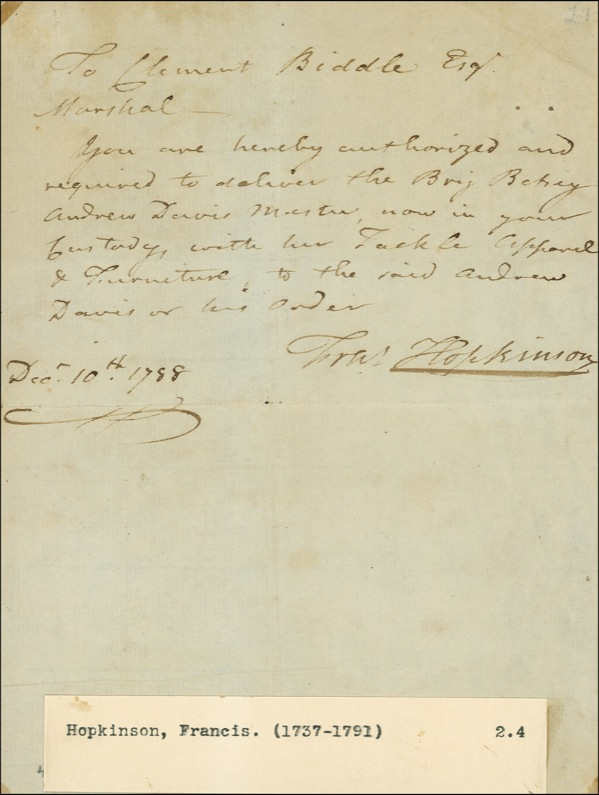 To Clement Biddle Esqr.
Marshal
You are hereby authorized and
required to deliver the Brig Betsey
Andrew Davis Master, now in your
Custody, with her Tackle Apparel
& Furniture, to the said Andrew
Davis or his Order
Fras. Hopkinson
Decr. 10th. 1788
Hopkinson, Francis. (1737-1791) 2.4